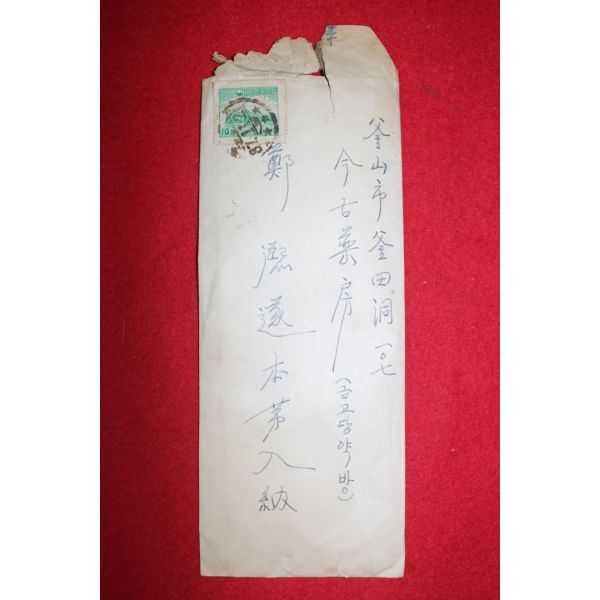 釜山市釜田洞一〇七
今古藥房(금고당약방)
鄭 遂本第入納
10